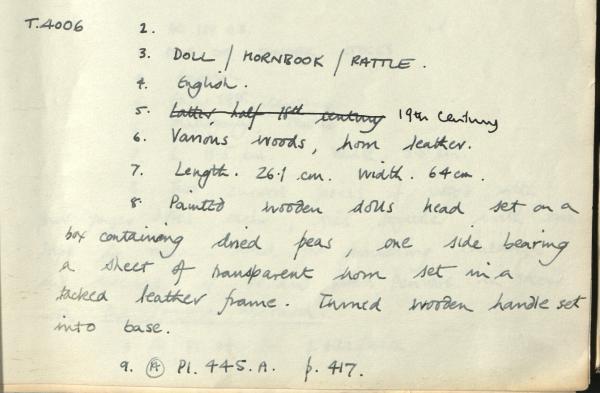 T.4006 2.
3. DOLL / HORNBOOK / RATTLE.
4. English.
5. Latter half 18th century 19th Century
6. Various woods, horn leather.
7. Length. 26.1 cm. Width. 64 cm.
8. Painted wooden dolls head set on a
box containing dried peas, one side bearing
a sheet of transparent horn set in a
tacked leather frame. Turned wooden handle set
into base.
9. A Pl. 445. A. p. 417.